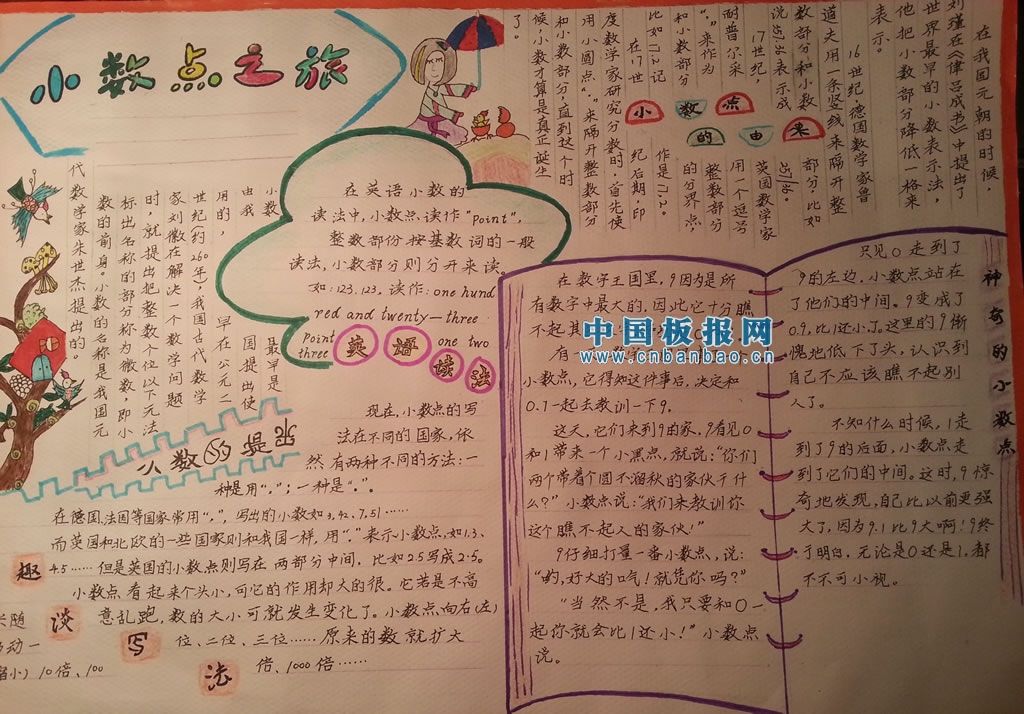 小数点之旅
在我国元朝的时候，
刘瑾在《律吕成书》中提出了
世界最早的小数表示法，
他把小数部分降低一格来
表示。
16世纪，德国数学家鲁
道夫用一条竖线来隔开整
数部分和小数部分，比如
257.36表示成
17世纪，英国数学家
耐普尔采用一个逗号
“，”来作为整数部分
和小数部分的分界点
比如17.2记作是17,2.
在17世纪后期，印
度数学家研究分数时，首先使
用小圆点“.”来隔开整数部分
和小数部分，直到这个时
候，小数才算是真正诞生
了。
小数点
的由来
小数最早是
由我国提出使
用的，早在公元三
世纪（约260年），我国古代数学
家刘徽在解决一个数学问题
时，就提出把整数个位以下无法
标出名称的部分称为微数，即小
数的前身。小数的名称是我国元
代数学家朱世杰提出的。
小数的提出
在英语小数的
读法中，小数点读作“point”，
整数部份按基数词的一般
读法，小数部分则分开来读。
如：123.123，读作：one hund
red and twenty—three
Point one two
three
英语读法
现在，小数点的写
法在不同的国家，依
然有两种不同的方法：一
种是用“，”；一种是“.”。
在德国、法国等国家常用“，”，写出的小数如3,42、7,51……
而英国和北欧的一些国家则和我国一样，用“.”表示小数点，如1.3、
4.5……但是英国的小数点则写在两部分中间，比如2.5写成2·5。
小数点看起来个头小，可它的作用却大的很。它若是不高
兴随意乱跑，数的大小可就发生变化了。小数点向右（左）
移动一位、二位、三位……原来的数就扩大
（缩小）10倍、100倍、1000倍……
趣谈写法
在数字王国里，9因为是所
有数字中最大的，因此它十分瞧
不起其
有一
小数点，它得知这件事后，决定和
0.1一起去教训一下9。
这天，它们来到9的家，9看见0
和1带来一个小黑点，就说：“你们
两个带着个圆不溜秋的家伙干什
么？”小数点说：“我们来教训你
这个瞧不起人的家伙！”
9仔细打量一番小数点，说：
“哟，好大的口气！就凭你吗？”
“当然不是，我只要和0一
起你就会比1还小！”小数点
说。
只见0走到了
9的左边，小数点站在
了他们的中间。9变成了
0.9，比1还小了。这里的9惭
愧地低下了头，认识到
自己不应该瞧不起别
人了。
不知什么时候，1走
到了9的后面，小数点走
到了它们的中间。这时，9惊
奇地发现，自己比以前更强
大了，因为9.1比9大啊！9终
于明白，无论是0还是1，都
不不可小视。
神奇的小数点
中国板报网
www.cnbanbao.cn